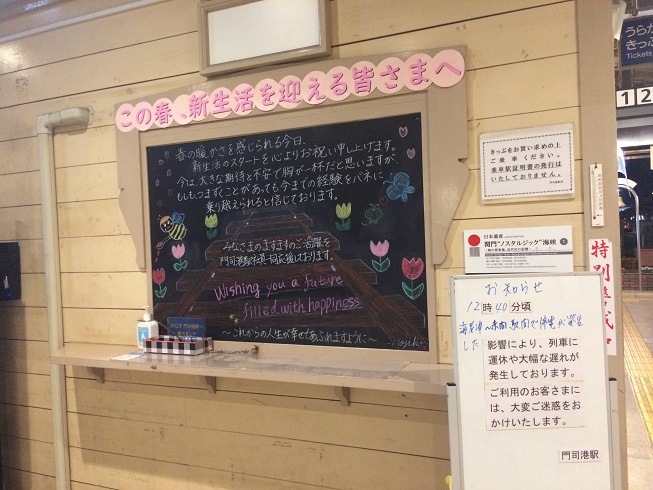 この春、新生活を迎える皆さまへ
春の暖かさを感じられる今日、
新生活のスタートを心よりお祝い申し上げます。
今は、大きな期待と不安で胸が一杯だと思いますが、
もしもつまずくことがあっても今までの経験をバネに
乗り越えられると信じております。
みなさまのますますのご活躍を
門司港駅社員一同応援しております。
Wishing you a future
filled with happiness
〜これからの人生が幸せあふれますように〜
きっぷをお買い求めの上
ご乗車ください。
乗車駅証明書の発行は
いたしておりません。
日本遺産
関門"ノスタルジック"海峡
お知らせ
12時40分頃
影響により、列車に
運休や大幅な遅れが
発生しております。
ご利用のお客さまに
は、大変ご迷惑をお
かけいたします。
門司港駅
特別
うらか
きっぷ
1 2